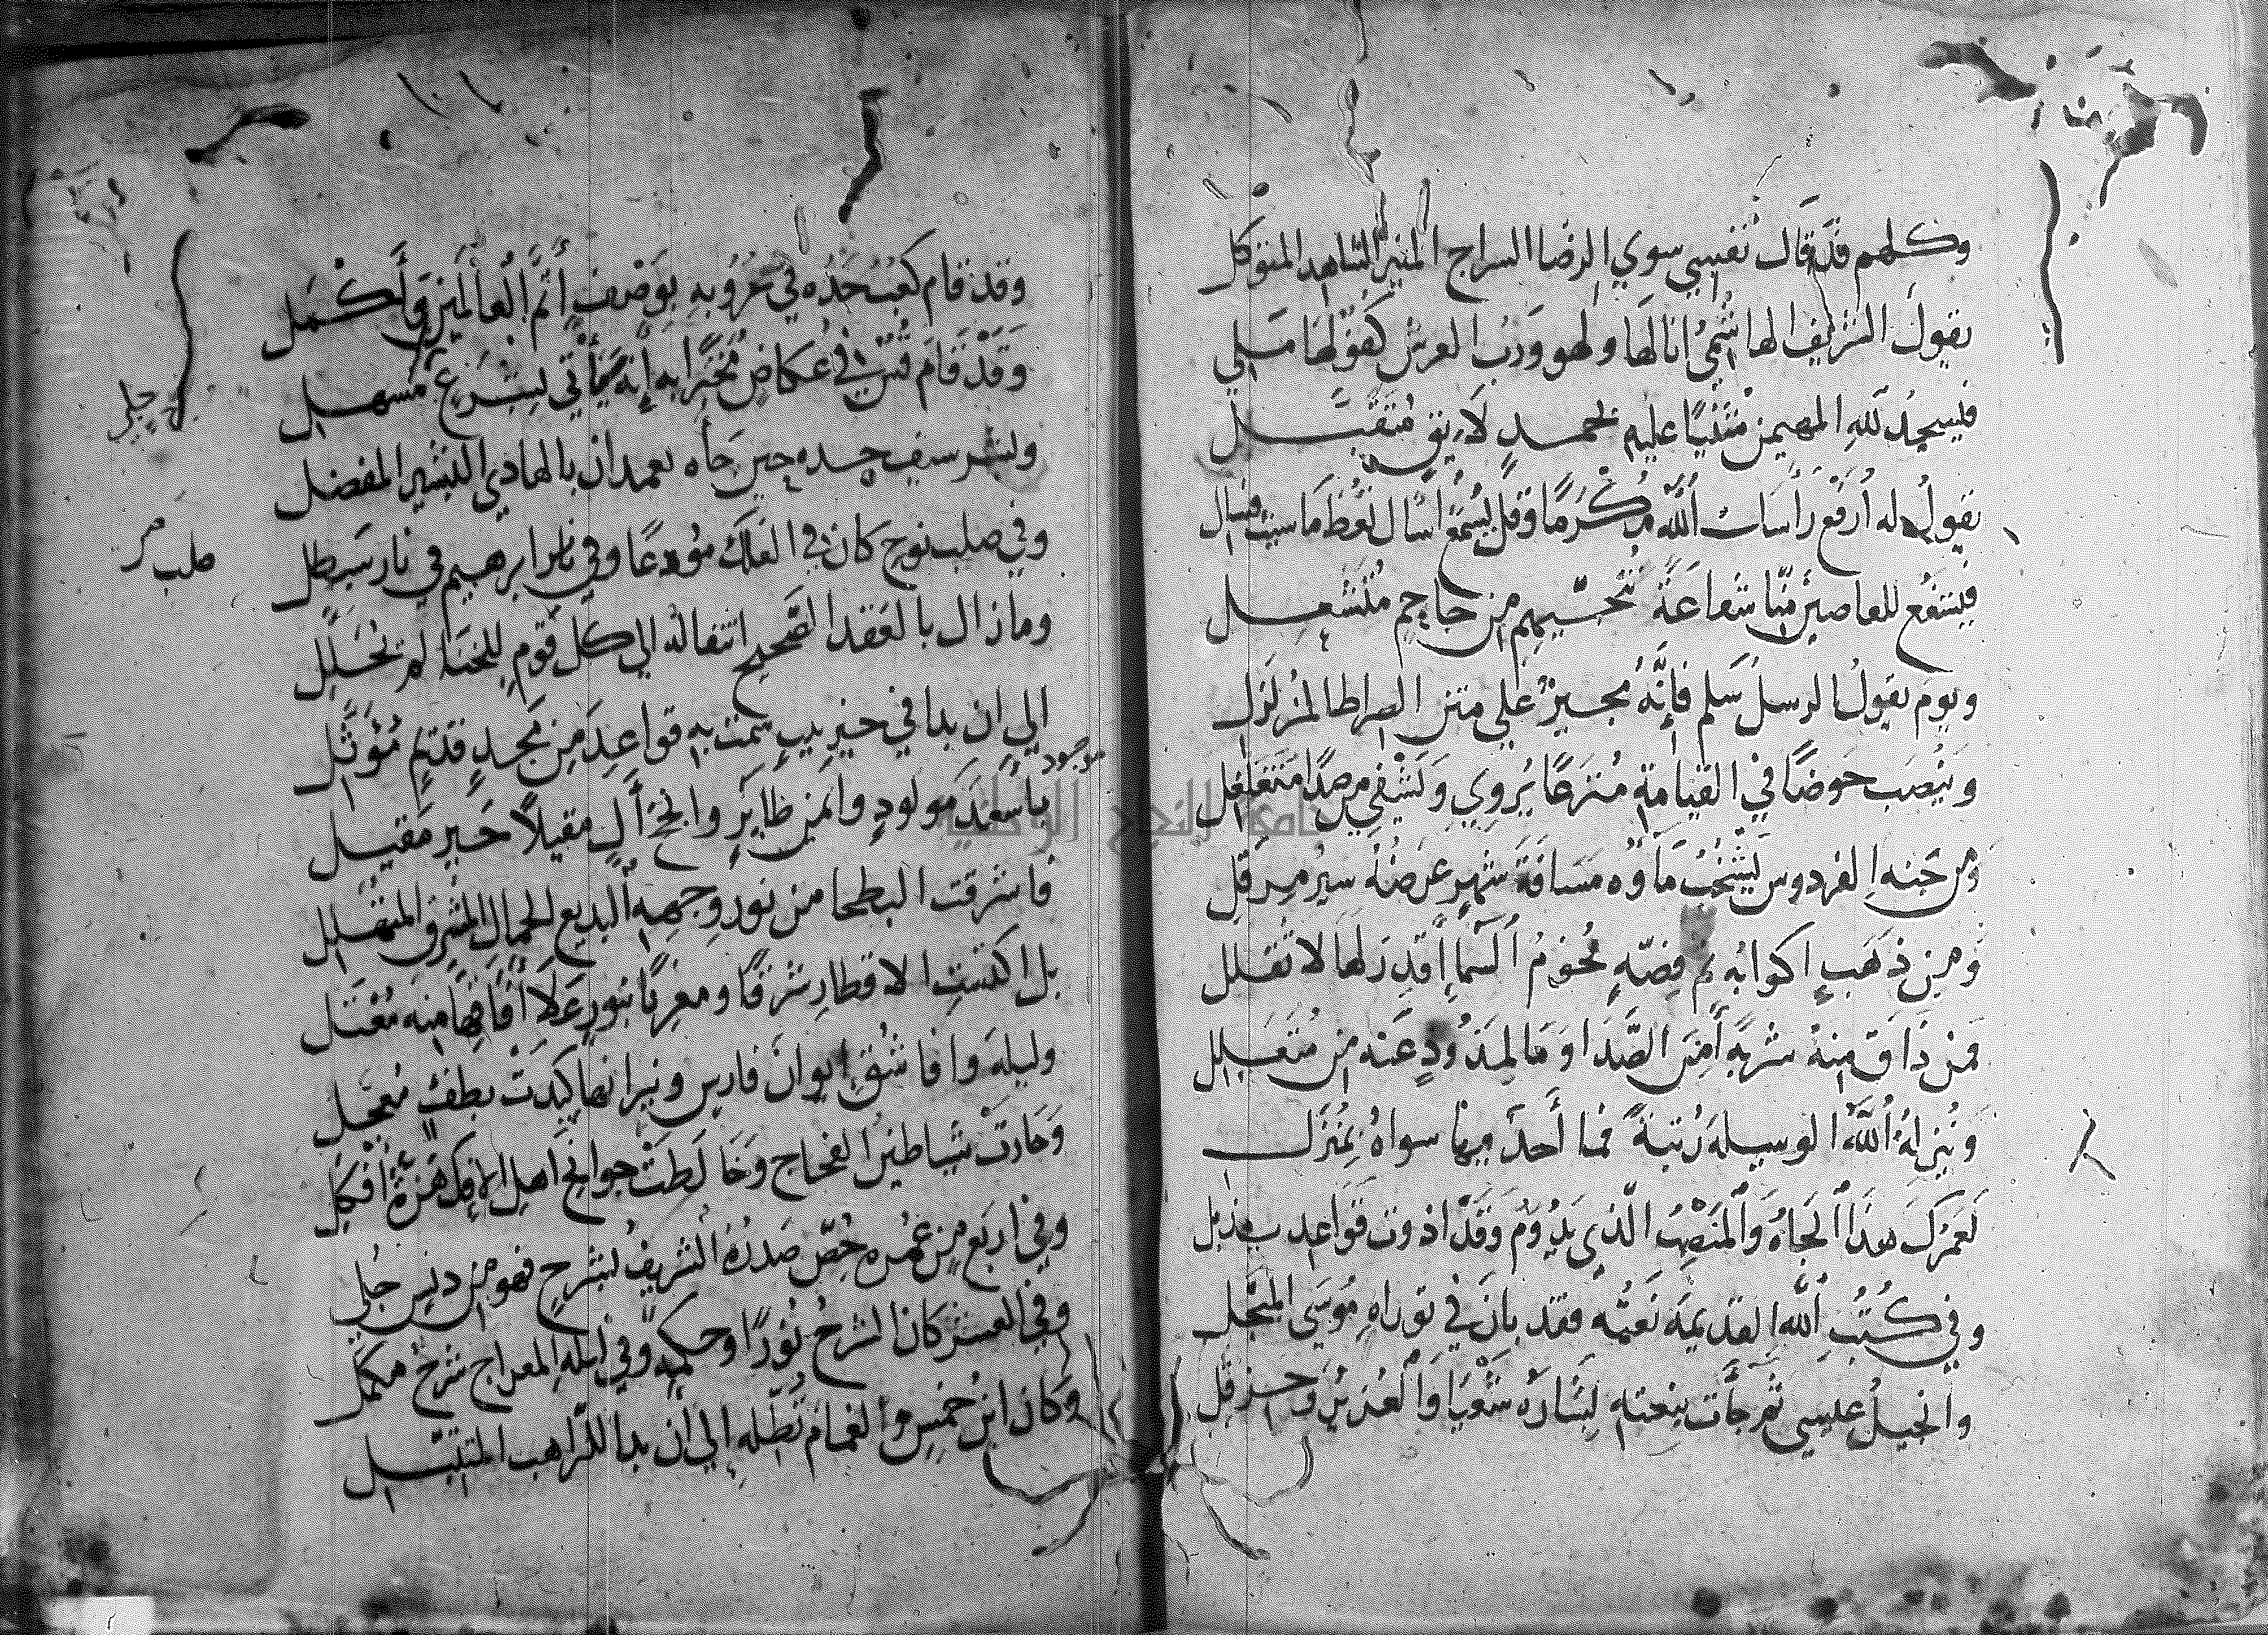 وكلهم قد قال نفسي سوي الرضا السراج المنير الشاهد المتوكل
يقول الشريف الهاشمي انا لها ولهو ورب العرش كفؤ لها ملي
فيسجد لله المهيمن مثنيا عليه بحمد لائق متقبل
يقول له ارفع رأسك الله مكرما وقل يسمع اسال تعط ما شيت فسال
فيشفع للعاصين منا شفاعة تنحيهم من جاحم متشعل
ويوم يقول الرسل سلم فإنه مجيز علي متن الصراط المزلزل
وينصب حوضا في القيامة مترعا يروي ويشفي من صدا متغلغل
ومن جنه الفردوس يشخب ماؤه مسافة شهر عرضه سير مرقل
ومن ذهب اكوابه ثم فضة نجوم السماء قدرها لا تقلل
فمن ذاق منه شربة أمن الصدا وما لمذود عنه من متعلل
وينزله الله الوسيلة رتبة فما أحد فيها سواه بمنزل
لعمرك هذا الجاه والمنصب الذي يدوم وقد اذوت قواعد يذبل
وفي كتب الله القديمة نعته فقد بان في توراة موسى المبجل
وانجيل عيسى ثم جأت بنعته بشارة شعيا والعزير وحزقل
وقد قام كعب جده في عروبه بوصف أتم العالمين وأكمل
وقد قام قس في عكاض مخبرا به إنه يأتي بشرع مسهل
وبشر سيف جده حين جاه بغمدان بالهادي البشير المفضل
وفي صلب نوح كان في الفلك مودعا وفي ابرهيم في نار
صلب صح
وما زال بالعقد الصحيح انتقاله الي كل قوم للخنا لم تحلل
الي ان بدا في خير بيت سمت به قواعد من مجد قديم مؤثل
باسعد مولود وايمن طاير وانجح أل مقيلا خير مقيل
موجود
فاشرقت البطحا من نور وجهه البديع الجمال المشرق المتهلل
بل اكتست الاقطار شرقا ومغربا بنور علا أفاقها منه مغتل
وليلة وافا شق ايوان فارس ونيرانها كيدت بطفئ معجل
وحارت شياطين الفجاج وخالطت جوانح اهل الإفك هزة أفكل
وفي اربع من عمره خص صدره الشريف بشرح فهو من دنس جلي
وفي العشر كان الشرح نورا وحكمة وفي ليلة المعراج شرح مكمل
وكان ابن خمس والغمام تظله الي ان بدا للراهب المتبتل